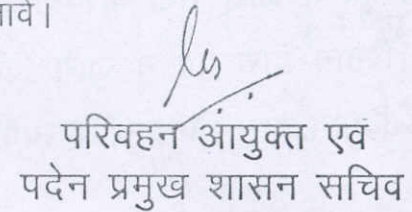 परिवहन आयुक्त एवं
पदेन प्रमुख शासन सचिव